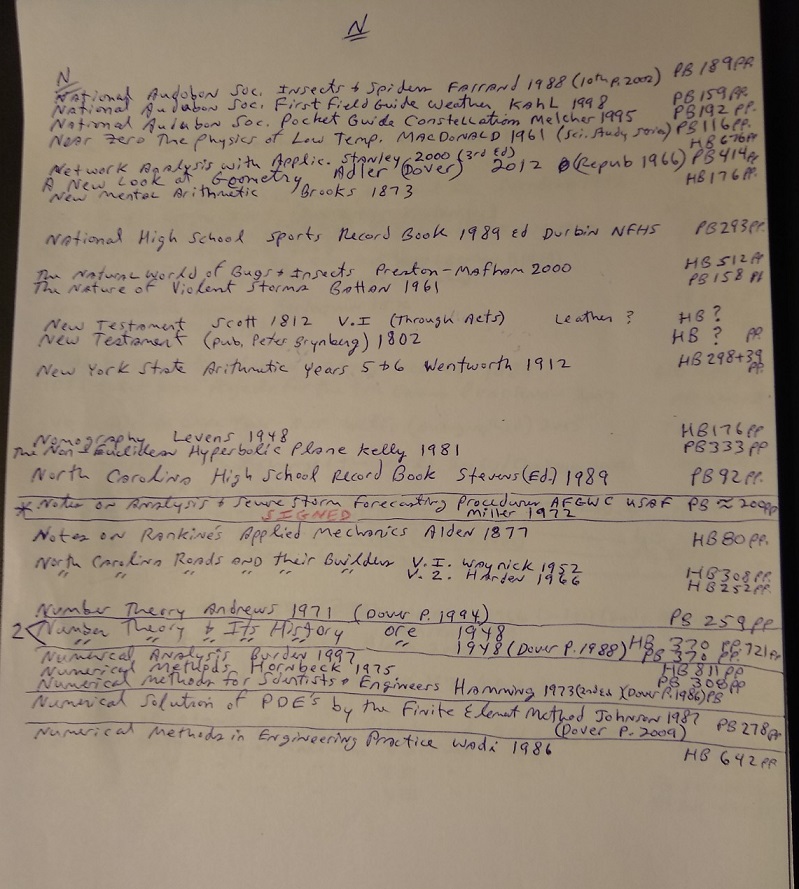 N
N
National Audobon Soc. Insects + Spiders Farrand 1988 (10th P. 2002) PB 189 PP
National Audubon Soc. First Field Guide Weather Kahl 1998 PB 159 PP.
National Audubon Soc. Pocket Guide Constellation Melcher 1995 PB 192 PP.
Near Zero The Physics of Low Temp. MACDONALD 1961 (Sci. Study Series) PB 116 PP.
Network Analysis with Applic. Stanley 2000 (3rd Ed) HB 676 PP
A New Look at Geometry Adler (Dover) 2012 (Repub 1966) PB 414 PP
New Mental Arithmetic Brooks 1873 HB 176 PP.
National High School Sports Record Book 1989 ed Durbin NFHS PB 293 PP.
The Natural World of Bugs + Insects Preston-Mafham 2000 HB 512 PP
The Nature of Violent Storms Battan 1961 PB 158 PP
New Testament Scott 1812 V.I (Through Acts) Leather ? HB ?
New Testament (pub. Peter Brynberg) 1802 HB ? PP.
New York State Arithmetic years 5+6 Wentworth 1912 HB 298+39 PP.
Nomography Levens 1948 HB 176 PP
The Non-Euclidean Hyperbolic Plane Kelly 1981 PB 333 PP
North Carolina High School Record Book Stevens (Ed.) 1989 PB 92 PP.
* Notes on Analysis + Severe Storm Forecasting Procedures AFGWC USAF PB ≈ 200 PP
SIGNED Miller 1972
Notes on Rankine's Applied Mechanics Alden 1877 HB 80 PP.
North Carolina Roads AND their Builders V. I. Waynick 1952 HB 308 PP.
" " " " " " V. 2. Harden 1966 HB 252 PP.
Number Theory Andrews 1971 (Dover P. 1994) PB 259 PP
2 < Number Theory & Its History Ore 1948 HB 370 PP.
" " " " 1948 (Dover P. 1988) PB 370 PP.
Numerical Analysis Burden 1997 721 PP
Numerical Methods Hornbeck 1975 HB 811 PP
Numerical Methods for Scientists + Engineers Hamming 1973 (2nd ed) (Dover P. 1986) PB
PB 308 PP
Numerical Solution of PDE's by the Finite Element Method Johnson 1987
(Dover P. 2009) PB 278 PP
Numerical Methods in Engineering Practice Wadi 1986 HB 642 PP.